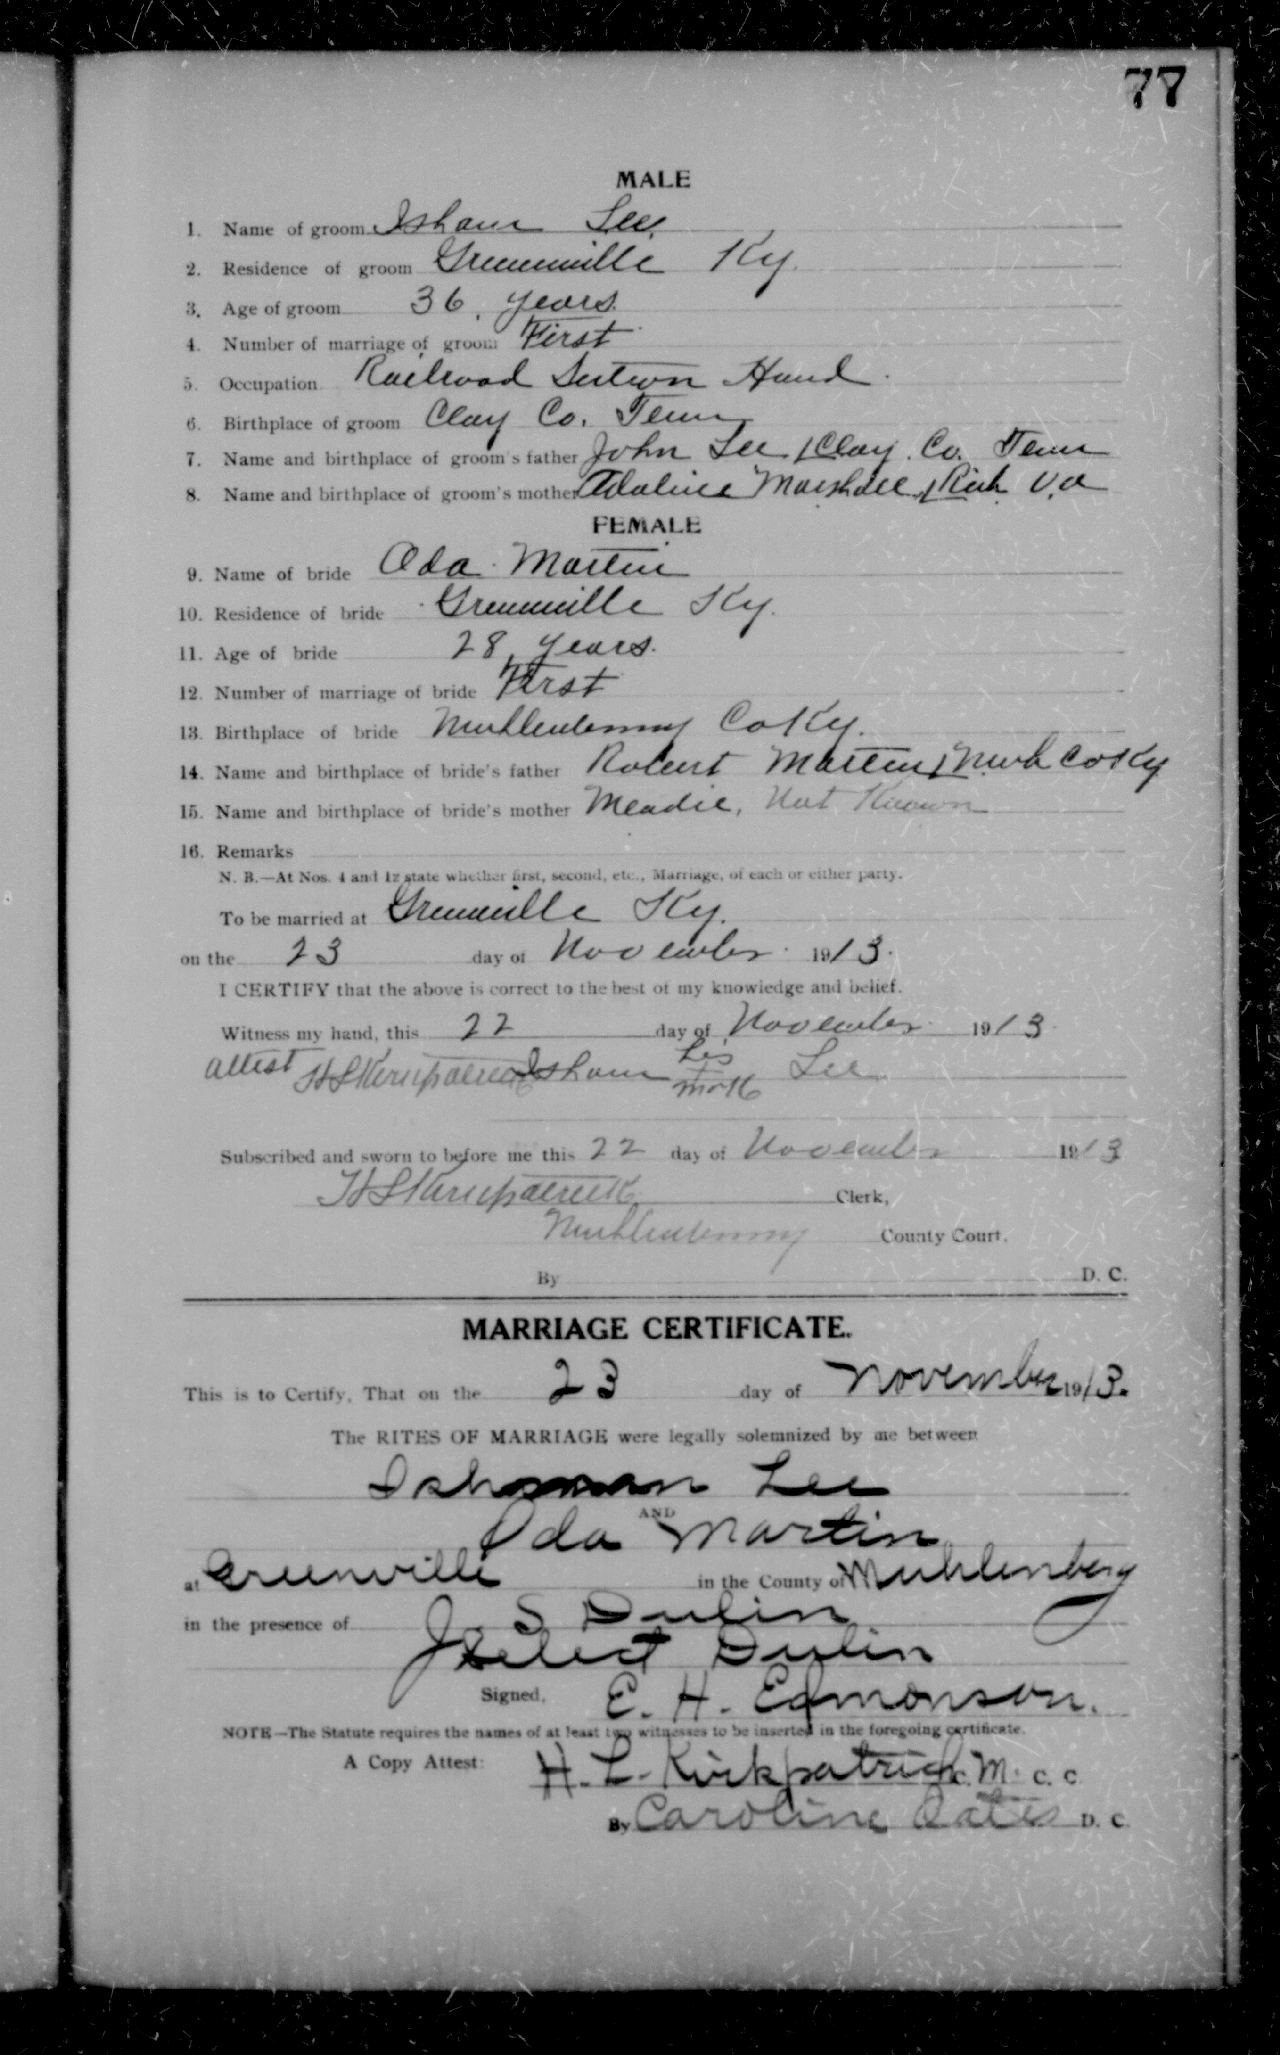 77
MALE
1. Name of groom Isham Lee.
2. Residence of groom Greenville Ky.
3. Age of groom 36, years.
4. Number of marriage of groom First
5. Occupation Railroad Section Hand.
6. Birthplace of groom Clay Co. Tenn
7. Name and birthplace of groom's father John Lee, Clay Co. Tenn
8. Name and birthplace of groom's mother Adaline Marshall, Rich Va
FEMALE
9. Name of bride Oda Martin
10. Residence of bride Greenville Ky.
11. Age of bride 28, years.
12. Number of marriage of bride First
13. Birthplace of bride Muhlenberg Co Ky.
14. Name and birthplace of bride's father Robert Martin, Muh Co Ky
15. Name and birthplace of bride's mother Meadie, Not Known
16. Remarks
N. B.—At Nos. 4 and 12 state whether first, second, etc., Marriage, of each or either party.
To be married at Greenville Ky.
on the 23 day of November 1913.
I CERTIFY that the above is correct to the best of my knowledge and belief.
Witness my hand, this 22 day of November 1913.
his
attest H L Kirkpatrick Isham x Lee
mark
Subscribed and sworn to before me this 22 day of November 1913
H L Kirkpatrick Clerk,
Muhlenberg County Court.
By D. C.
MARRIAGE CERTIFICATE.
This is to Certify, That on the 23 day of November 1913.
The RITES OF MARRIAGE were legally solemnized by me between
Lee
AND
Oda Martin
at Greenville in the County of Muhlenberg
in the presence of J S Dulin
Dulin
Signed, E. H. Edmonson.
NOTE—The Statute requires the names of at least two witnesses to be inserted in the foregoing certificate.
A Copy Attest: H. L. Kirkpatrick C. M. C. C.
By Caroline Oates D. C.